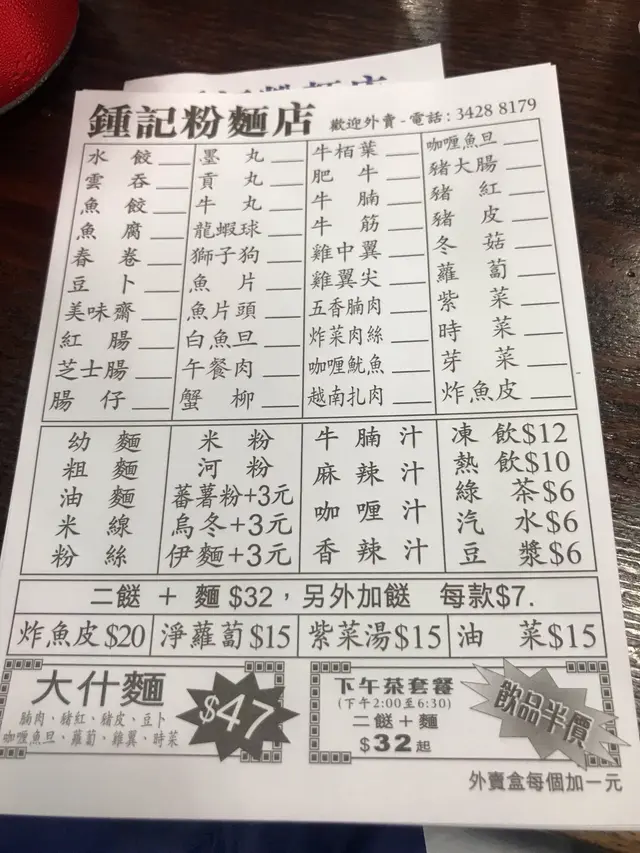 鍾記粉麵店 歡迎外賣 - 電話 : 3428 8179
水餃
雲吞
魚餃
魚腐
春卷
豆卜
美味齋
紅腸
芝士腸
腸仔
墨丸
貢丸
牛丸
龍蝦球
獅子狗
魚片
魚片頭
白魚旦
午餐肉
蟹柳
牛栢葉
肥牛
牛腩
牛筋
雞中翼
雞翼尖
五香腩肉
炸菜肉絲
咖喱魷魚
越南扎肉
咖喱魚旦
豬大腸
豬紅
豬皮
冬菇
蘿蔔
紫菜
時菜
芽菜
炸魚皮
幼麵
粗麵
油麵
米線
粉絲
米粉
河粉
蕃薯粉+3元
烏冬+3元
伊麵+3元
牛腩汁
麻辣汁
咖喱汁
香辣汁
凍飲$12
熱飲$10
綠茶$6
汽水$6
豆漿$6
二餸 + 麵 $32，另外加餸 每款$7.
炸魚皮$20 淨蘿蔔$15 紫菜湯$15 油菜$15
大什麵
腩肉、豬紅、豬皮、豆卜
咖喱魚旦、蘿蔔、雞翼、時菜
$47
下午茶套餐
(下午2:00至6:30)
二餸+麵
$32起
飲品半價
外賣盒每個加一元